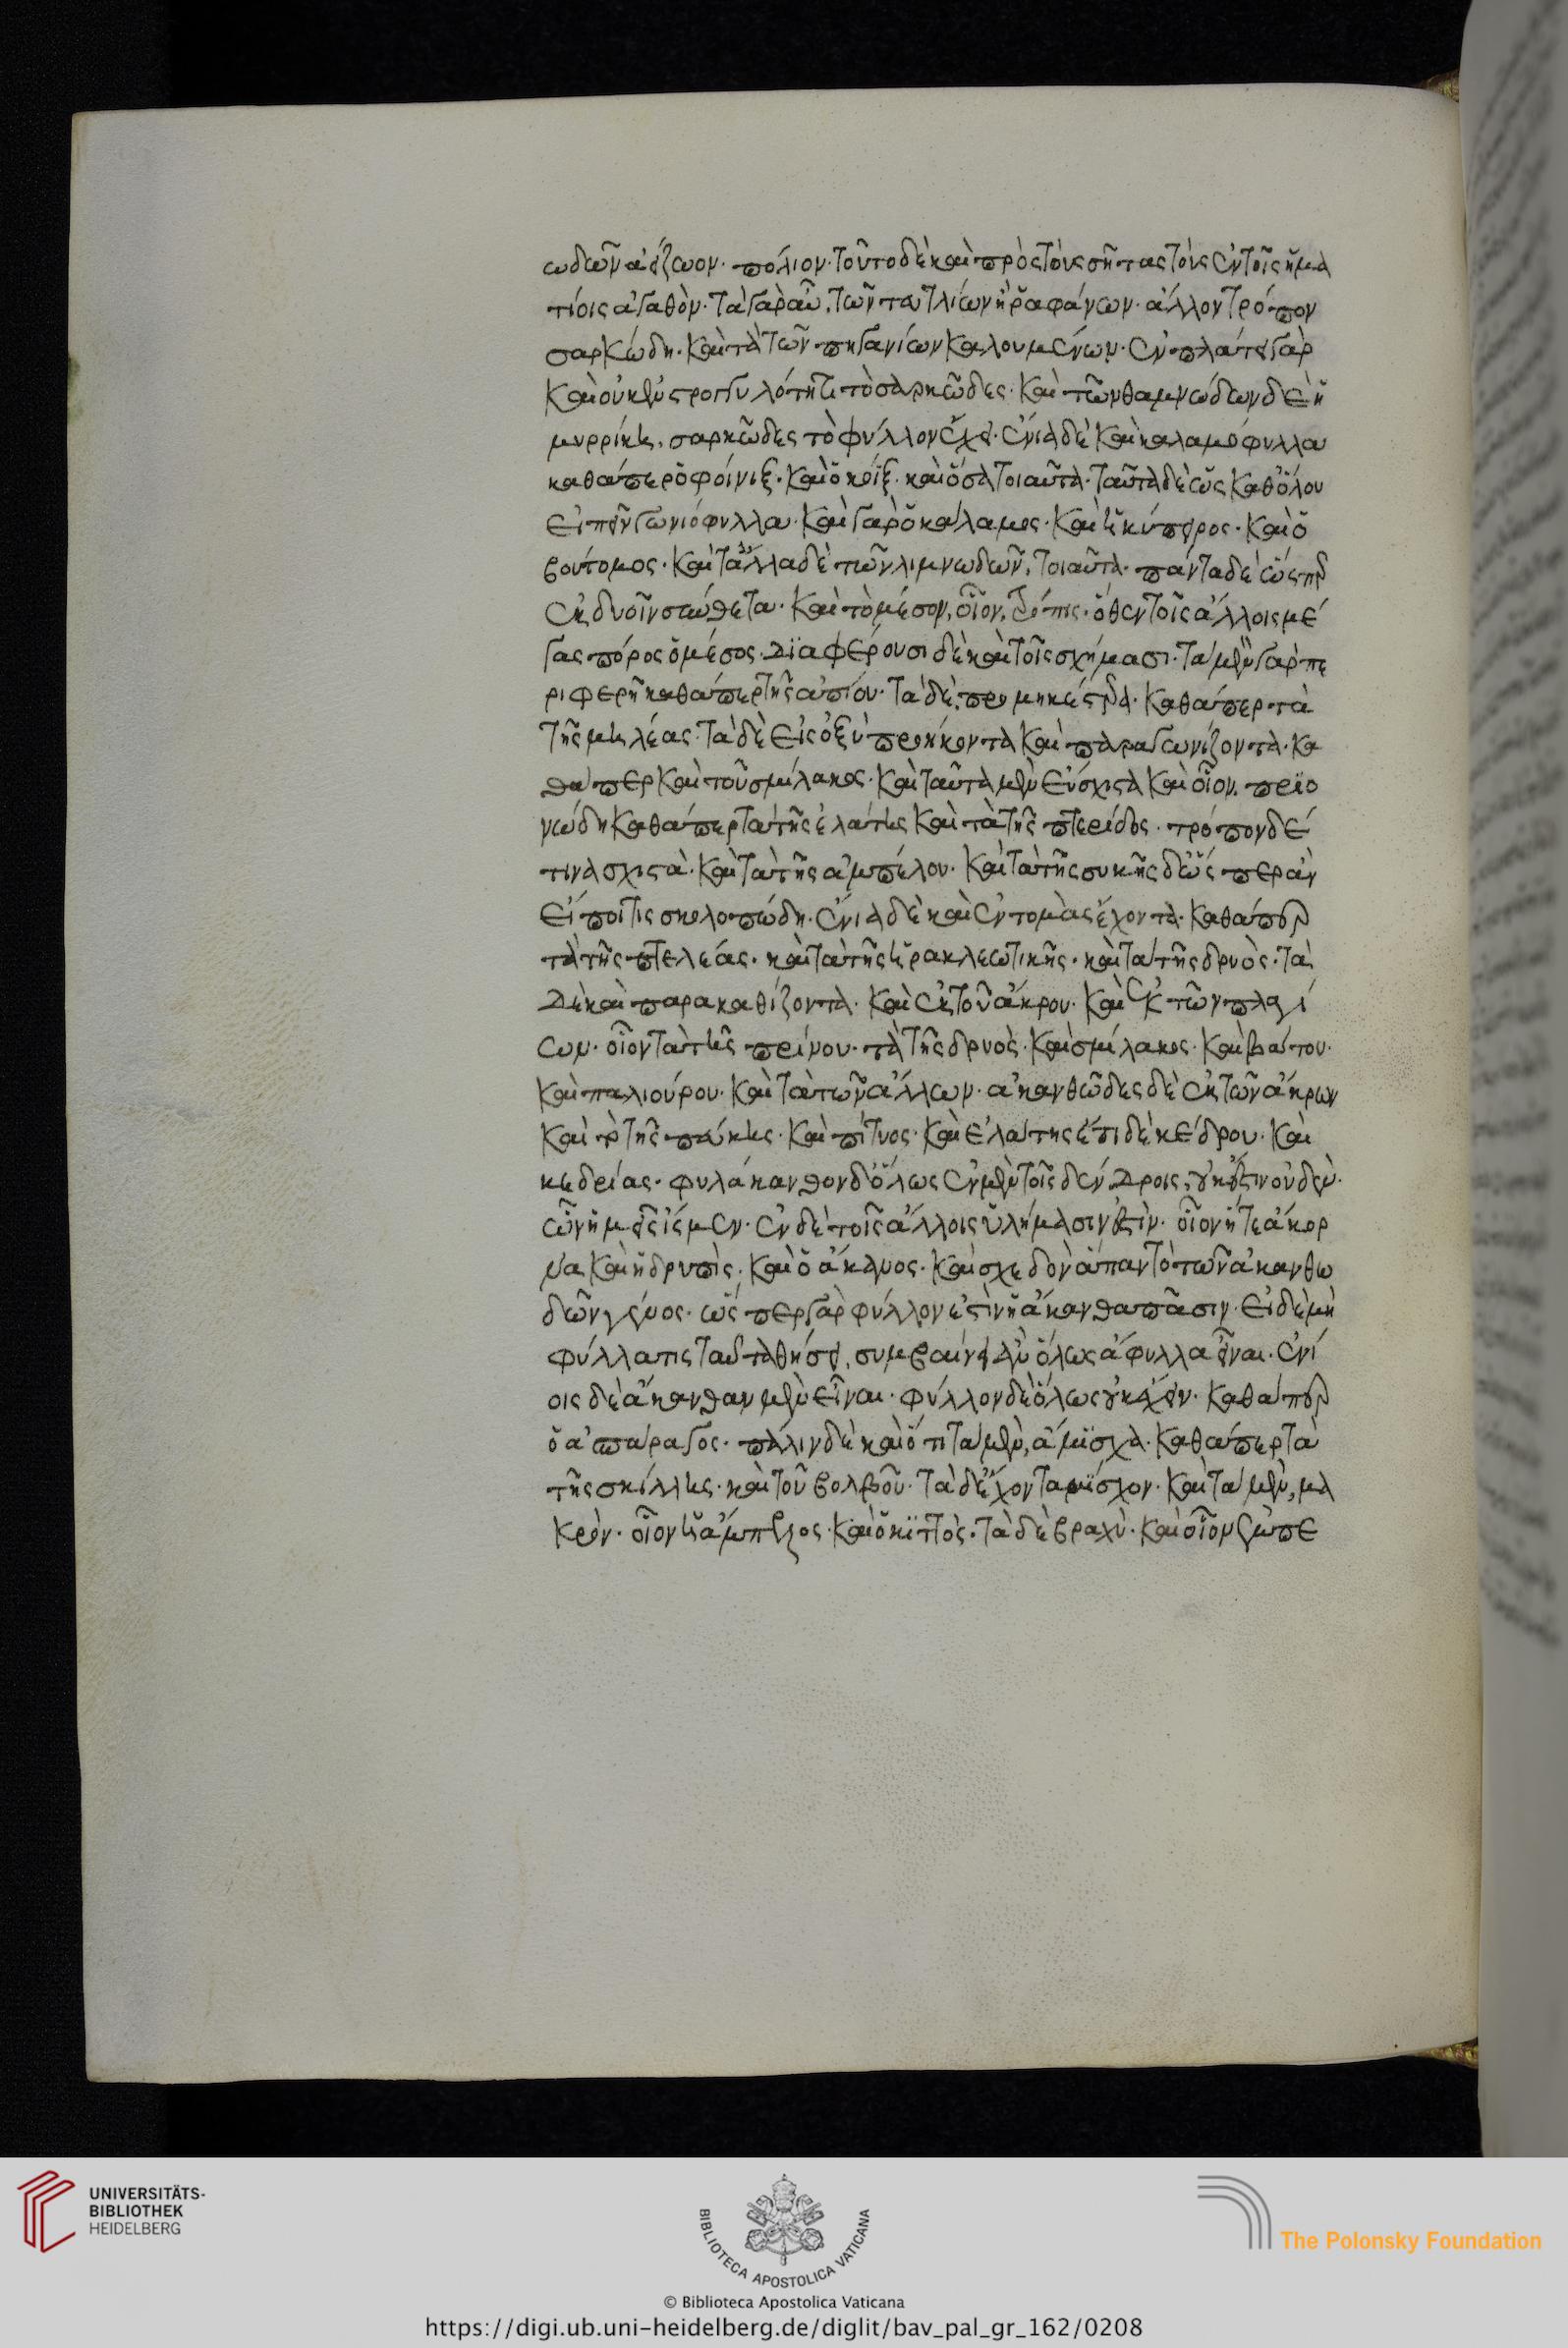 ωδῶν ἀείζωον. πόλιον. τοῦτο δὲ καὶ πρὸς τοὺς σῆτας τοὺς ἐν τοῖς ἡμα
τίοις ἀγαθὸν. τὰ γὰρ αὖ, τῶν τευτλίων ἢ ῥαφάνων. ἄλλον τρόπον
σαρκώδη. καὶ τὰ τῶν πηγανίων καλουμένων. ἐν πλάτει γὰρ
καὶ οὐκ ἐν στρογγυλότητι τὸ σαρκῶδες. καὶ τῶν θαμνώδων δὲ ἡ
μυρρίκη, σαρκῶδες τὸ φύλλον ἔχει. ἔνια δὲ καὶ καλαμόφυλλα
καθάπερ ὁ φοίνιξ. καὶ ὁ κόϊξ. καὶ ὅσα τοιαῦτα. ταῦτα δὲ ὡς καθόλου
εἰπεῖν γωνιόφυλλα. καὶ γὰρ ὁ κάλαμος. καὶ ἡ κύπειρος. καὶ ὁ
βούτομος. καὶ τἄλλα δὲ τῶν λιμνωδῶν, τοιαῦτα. πάντα δὲ ὥσπερ
ἐκ δυοῖν σύνθετα. καὶ τὸ μέσον, οἷον, τρόπις. ὅθεν τοῖς ἄλλοις μέ
γας πόρος ὁ μέσος. διαφέρουσι δὲ καὶ τοῖς σχήμασι. τὰ μὲν γὰρ πε
ριφερῆ καθάπερ τῆς ἀπίου. τὰ δὲ, προμηκέστερα. καθάπερ τὰ
τῆς μηλέας. τὰ δὲ εἰς ὀξὺ προήκοντα καὶ παραγωνίζοντα. κα
θάπερ καὶ τοῦ σμίλακος. καὶ ταῦτα μὲν εὔσχιστα καὶ οἷον, πριο
νώδη καθάπερ τὰ τῆς ἐλάτης καὶ τὰ τῆς πτερίδος. τρόπον δέ
τινα σχιστὰ. καὶ τὰ τῆς ἀμπέλου. καὶ τὰ τῆς συκῆς δὲ ὥσπερ ἂν
εἴποι τις σκολοπώδη. ἔνια δὲ καὶ ἐντομὰς ἔχοντα. καθάπερ
τὰ τῆς πτελέας. καὶ τὰ τῆς ἡρακλεωτικῆς. καὶ τὰ τῆς δρυὸς. τὰ
δὲ καὶ παρακαθίζοντα. καὶ ἐκ τοῦ ἄκρου. καὶ ἐκ τῶν πλαγί
ων. οἷον τὰ τῆς πρίνου. τὰ τῆς δρυὸς. καὶ σμίλακος. καὶ βάτου.
καὶ παλιούρου. καὶ τὰ τῶν ἄλλων. ἀκανθῶδες δὲ ἐκ τῶν ἄκρων
καὶ τὸ τῆς πεύκης. καὶ πίτυος. καὶ ἐλάτης ἔτι δὲ κέδρου. καὶ
κεδρίας. φυλάκανθον δ' ὅλως ἐν μὲν τοῖς δένδροις, οὐκ ἔστιν οὐδὲν.
ὧν ἡμεῖς ἴσμεν. ἐν δὲ τοῖς ἄλλοις ὑλήμασιν ἐστὶν. οἷον ἥ τε ἄκορ
να καὶ ἡ δρυπὶς. καὶ ὁ ἄκανος. καὶ σχεδὸν ἅπαν τὸ τῶν ἀκανθω
δῶν γένος. ὥσπερ γὰρ φύλλον ἐστὶν ἡ ἄκανθα πᾶσιν. εἰ δὲ μὴ
φύλλα τις ταῦτα θήσει, συμβαίνει ἂν ὅλως ἄφυλλα εἶναι. ἐνί
οις δὲ ἄκανθαν μὲν εἶναι. φύλλον δὲ ὅλως οὐκ ἔχειν. καθάπερ
ὁ ἀσπάραγος. πάλιν δὲ καὶ ὅτι τὰ μὲν, ἄμϊσχα. καθάπερ τὰ
τῆς σκίλλης. καὶ τοῦ βολβοῦ. τὰ δὲ ἔχοντα μίσχον. καὶ τὰ μὲν, μα
κρὸν. οἷον ἡ ἄμπελος. καὶ ὁ κιττὸς. τὰ δὲ βραχὺ. καὶ οἷον ἐμπε
UNIVERSITÄTS-
BIBLIOTHEK
HEIDELBERG
BIBLIOTECA APOSTOLICA VATICANA
The Polonsky Foundation
© Biblioteca Apostolica Vaticana
https://digi.ub.uni-heidelberg.de/diglit/bav_pal_gr_162/0208